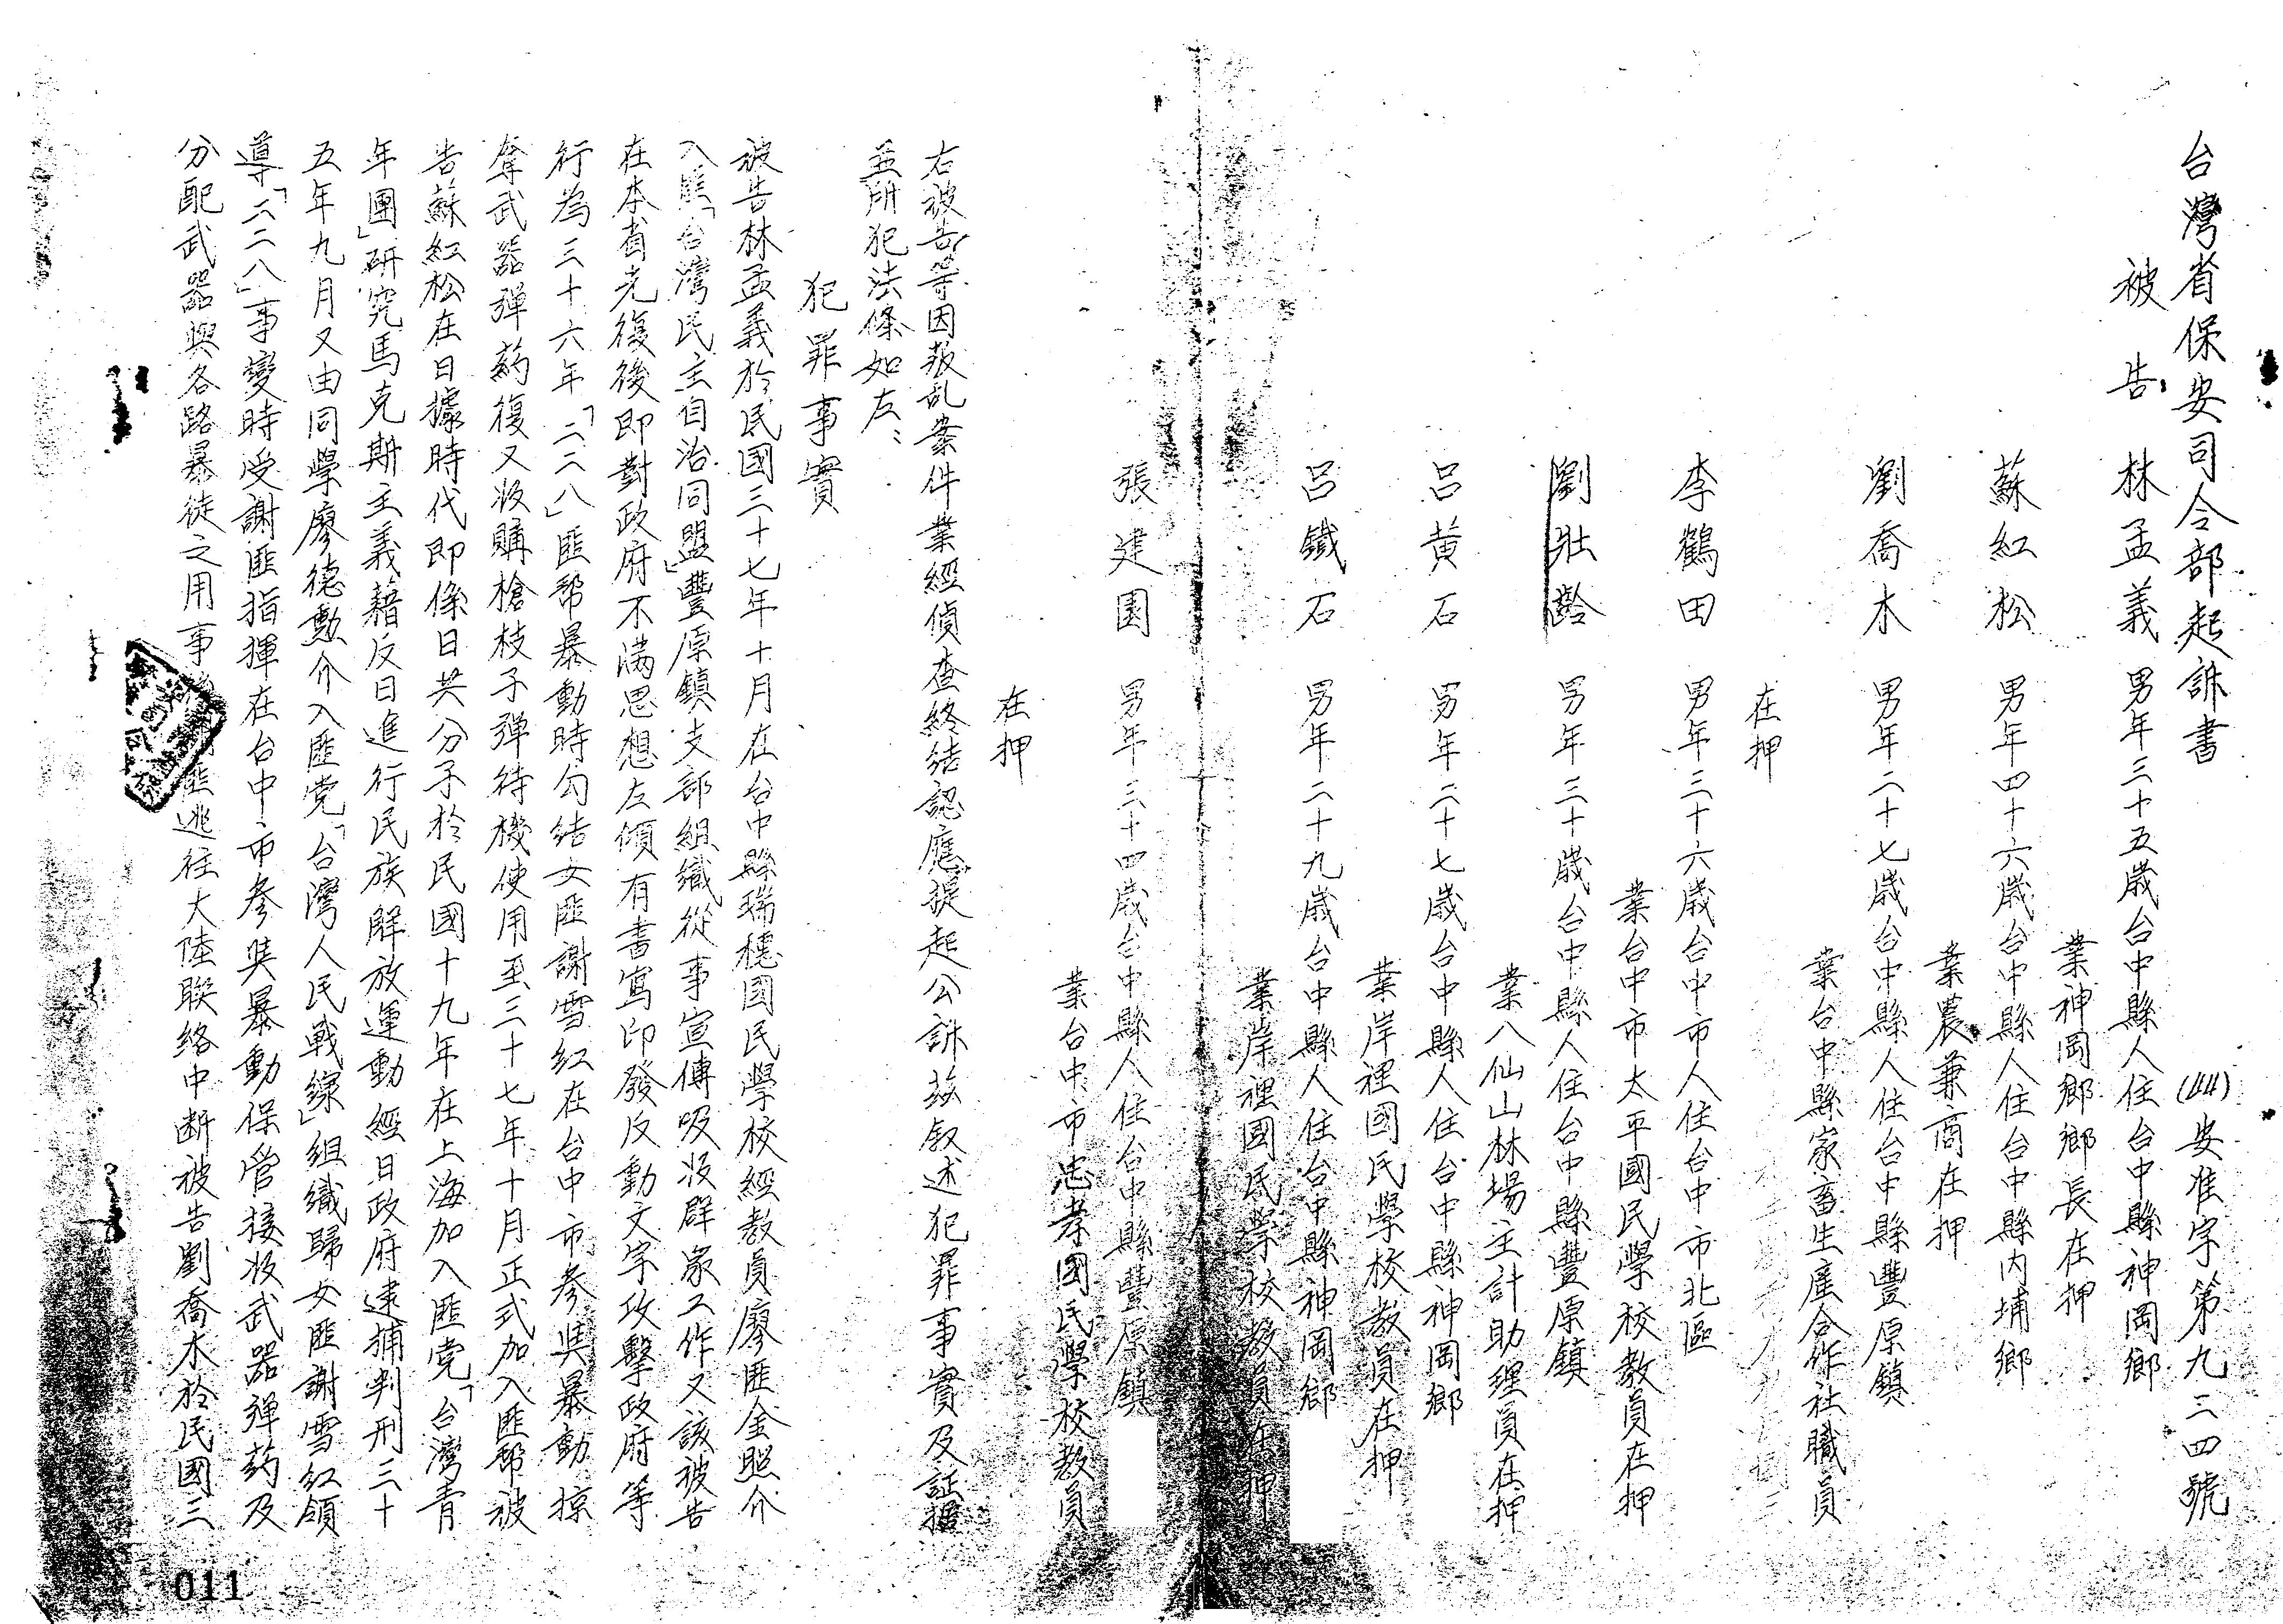 台灣省保安司令部起訴書
(44)安准字第九三四號
被告 林孟義 男年三十五歲台中縣人住台中縣神岡鄉
業神岡鄉鄉長在押
蘇紅松 男年四十六歲台中縣人住台中縣內埔鄉
業農兼商在押
劉喬木 男年二十七歲台中縣人住台中縣豐原鎮
業台中縣家畜生產合作社職員
在押
李鶴田 男年三十六歲台中市人住台中市北區
業台中市太平國民學校教員在押
劉壯齡 男年三十歲台中縣人住台中縣豐原鎮
業八仙山林場主計助理員在押
呂黄石 男年二十七歲台中縣人住台中縣神岡鄉
業岸裡國民學校教員在押
呂鐵石 男年二十九歲台中縣人住台中縣神岡鄉
業岸裡國民學校教員在押
張建園 男年三十四歲台中縣人住台中縣豐原鎮
業台中市忠孝國民學校教員
在押
右被告等因叛乱案件業經偵查終結認應提起公訴茲叙述犯罪事實及証據
並所犯法條如左：
犯罪事實
被告林孟義於民國三十七年十月在台中縣瑞穗國民學校經教員廖匪金照介
入匪「台灣民主自治同盟」豐原鎮支部組織從事宣傳吸收群眾工作又該被告
在本省光復後即對政府不滿思想左傾有書寫印發反動文字攻擊政府等
行為三十六年「二二八」匪帮暴動時勾結女匪謝雪紅在台中市參與暴動掠
奪武器弹葯復又收購槍枝子弹待機使用至三十七年十月正式加入匪帮被
告蘇紅松在日據時代即係日共分子於民國十九年在上海加入匪党「台灣青
年團」研究馬克斯主義藉反日進行民族解放運動經日政府逮捕判刑三十
五年九月又由同學廖德勳介入匪党「台灣人民戰線」組織歸女匪謝雪紅領
導「二二八」事變時受謝匪指揮在台中市參與暴動保管接收武器弹葯及
分配武器與各路暴徒之用事匪逃往大陸联络中断被告劉喬木於民國三
011